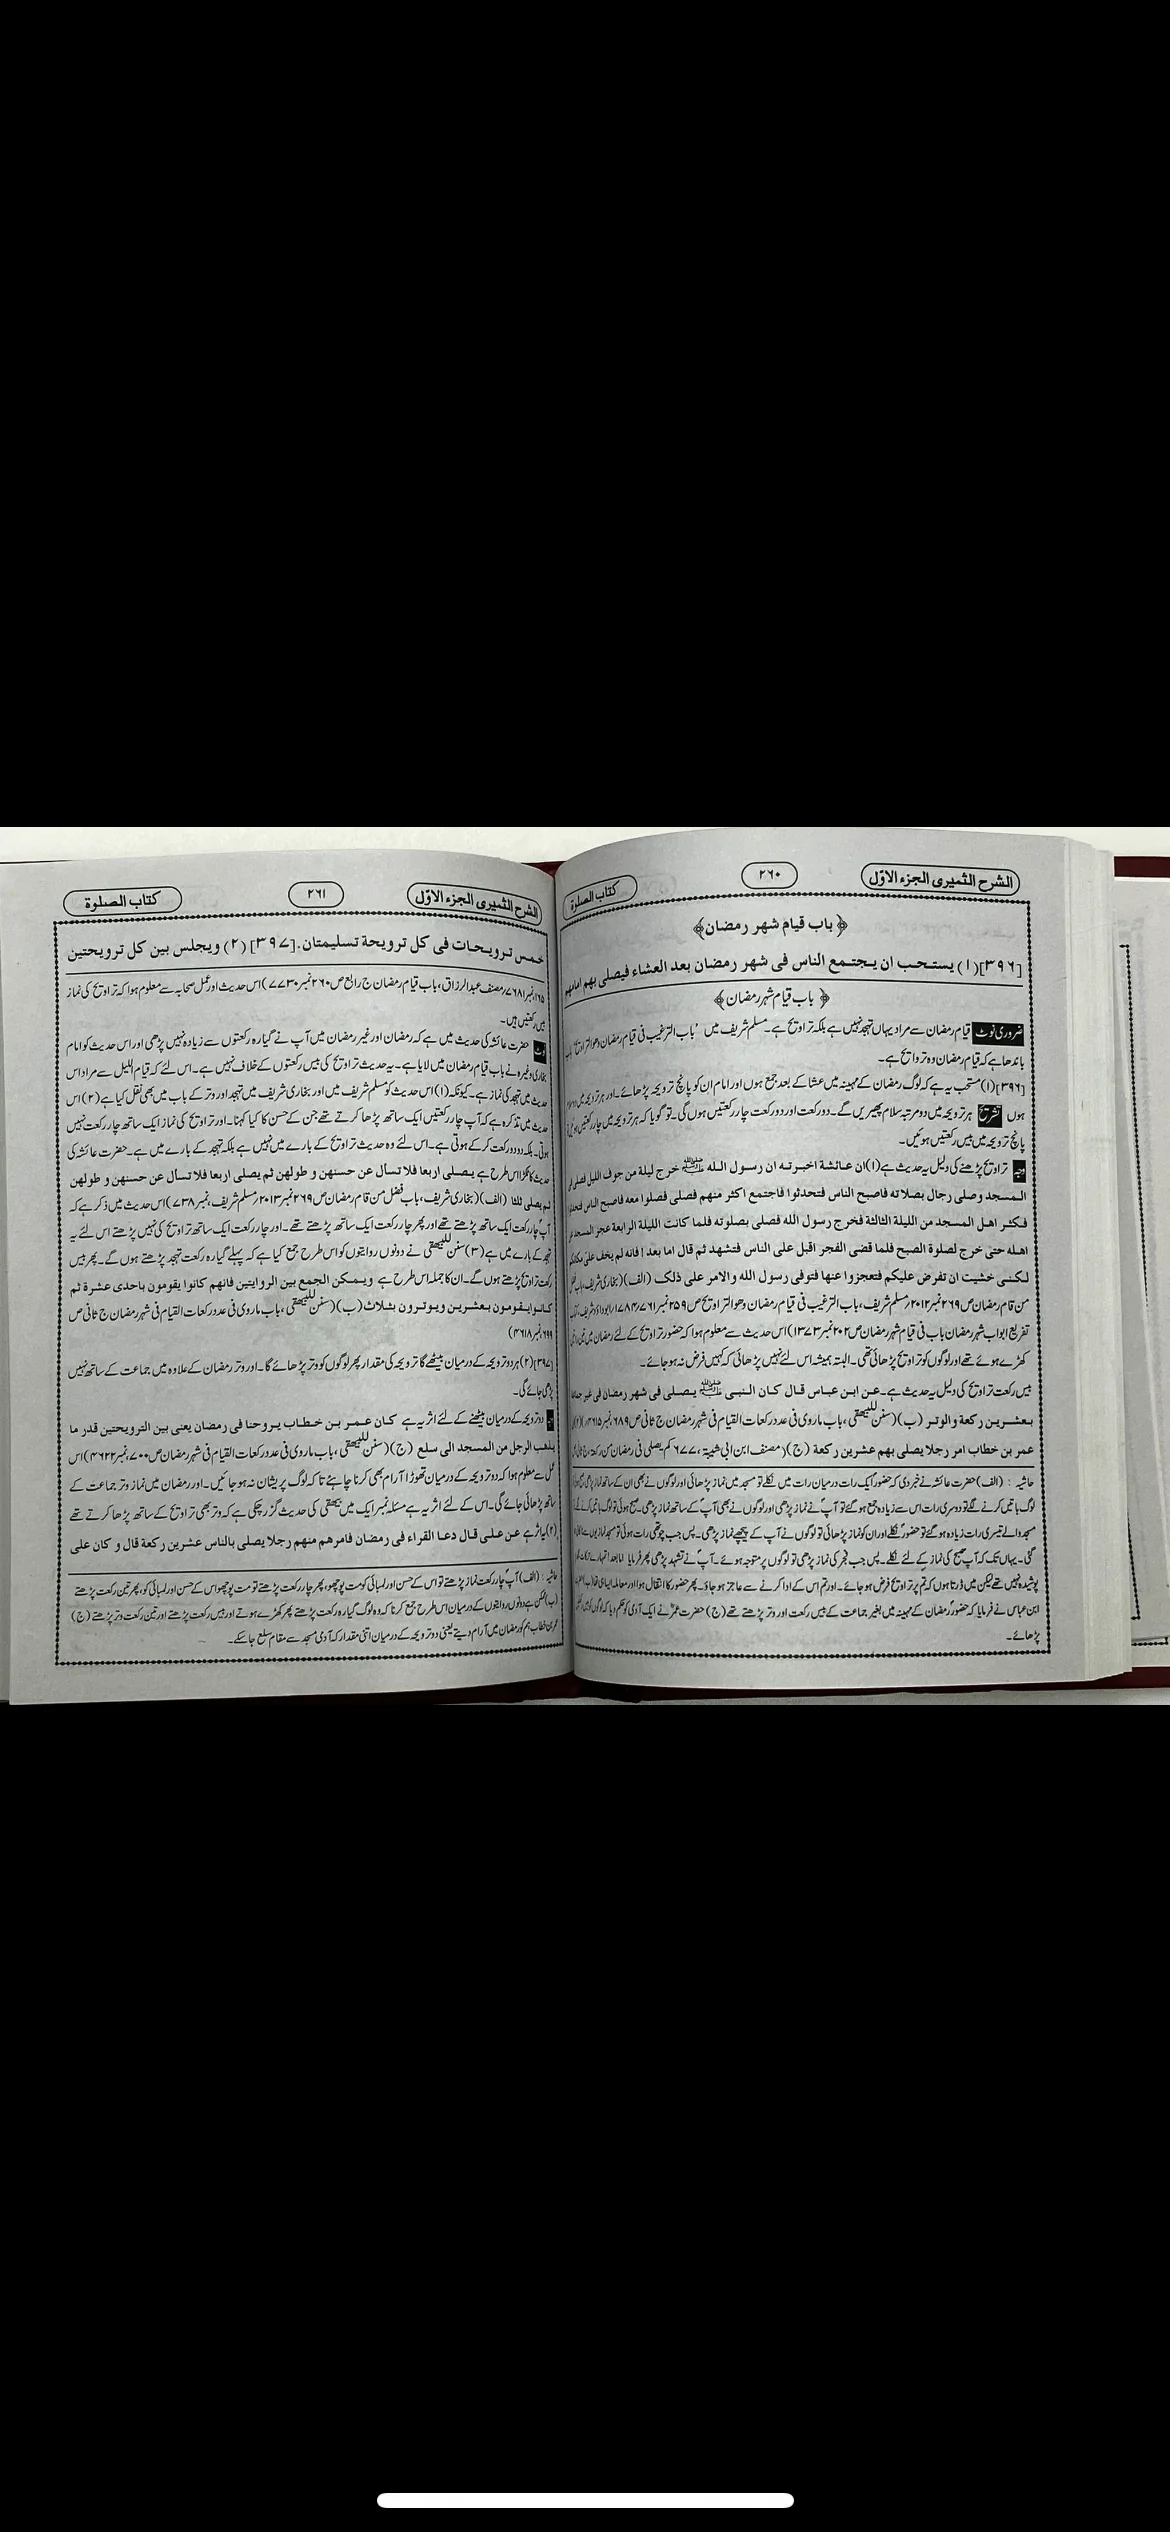 الشرح الثميری الجزء الاوّل
۲۶۰
کتاب الصلوة
﴿ باب قیام شهر رمضان﴾
[۳۹۶](۱) یستحب ان یجتمع الناس فی شهر رمضان بعد العشاء فیصلی بهم امامهم
﴿ باب قیام شہر رمضان ﴾
ضروری نوٹ قیام رمضان سے مراد یہاں تہجد نہیں ہے بلکہ تراویح ہے۔ مسلم شریف میں 'باب الترغیب فی قیام رمضان وھو التراویح'
باندھا ہے کہ قیام رمضان وہ تراویح ہے۔
[۳۹۶](۱) مستحب یہ ہے کہ لوگ رمضان کے مہینہ میں عشا کے بعد جمع ہوں اور امام ان کو پانچ ترویحہ پڑھائے۔ اور ہر ترویحہ میں دو سلام
ہوں تشریح ہر ترویحہ میں دو مرتبہ سلام پھیریں گے۔ دو رکعت اور دو رکعت چار رکعتیں ہوں گی۔ تو گویا کہ ہر ترویحہ میں چار رکعتیں ہوئیں
پانچ ترویحہ میں بیس رکعتیں ہوئیں۔
وجہ تراویح پڑھنے کی دلیل یہ حدیث ہے (۱) ان عائشة اخبرته ان رسول الله ﷺ خرج لیلة من جوف اللیل فصلی فی
المسجد وصلی رجال بصلاته فاصبح الناس فتحدثوا فاجتمع اکثر منهم فصلی فصلوا معه فاصبح الناس فتحدثوا
فکثر اهل المسجد من اللیلة الثالثة فخرج رسول الله فصلی بصلوته فلما کانت اللیلة الرابعة عجز المسجد عن
اهله حتی خرج لصلوة الصبح فلما قضی الفجر اقبل علی الناس فتشهد ثم قال اما بعد! فانه لم یخف علی مکانکم
لکنی خشیت ان تفرض علیکم فتعجزوا عنها فتوفی رسول الله والامر علی ذلک (الف) (بخاری شریف، باب فضل
من قام رمضان ص ۲۶۹ نمبر ۲۰۱۲ ؍مسلم شریف، باب الترغیب فی قیام رمضان وھو التراویح ص ۲۵۹ نمبر ۷۶۱ ؍۱۷۸۴ ؍ابو داؤد شریف،
تفریع ابواب شہر رمضان باب فی قیام شہر رمضان ص ۲۰۲ نمبر ۱۳۷۳) اس حدیث سے معلوم ہوا کہ حضور تراویح کے لئے رمضان میں
کھڑے ہوئے تھے اور لوگوں کو تراویح پڑھائی تھی۔ البتہ ہمیشہ اس لئے نہیں پڑھائی کہ کہیں فرض نہ ہو جائے۔
بیس رکعت تراویح کی دلیل یہ حدیث ہے۔ عن ابن عباس قال کان النبی ﷺ یصلی فی شهر رمضان فی غیر جماعة
بعشرین رکعة والوتر (ب) (سنن للبیھقی، باب ماروی فی عدد رکعات القیام فی شہر رمضان ج ثانی ص ۶۸۹ نمبر ۴۶۱۵)
عمر بن خطاب امر رجلا یصلی بهم عشرین رکعة (ج) (مصنف ابن ابی شیبة، ۶۷۷ کم یصلی فی رمضان من رکعة
حاشیہ : (الف) حضرت عائشہ نے خبر دی کہ حضور ایک رات درمیان رات میں نکلے تو مسجد میں نماز پڑھائی اور لوگوں نے بھی ان کے ساتھ نماز پڑھی۔
لوگ باتیں کرنے لگے تو دوسری رات اس سے زیادہ جمع ہو گئے تو آپ نے نماز پڑھی اور لوگوں نے بھی آپ کے ساتھ نماز پڑھی۔ صبح ہوئی تو لوگ باتیں کرنے لگے۔
مسجد والے تیسری رات زیادہ ہو گئے تو حضور نکلے اور ان کو نماز پڑھائی تو لوگوں نے آپ کے پیچھے نماز پڑھی۔ پس جب چوتھی رات ہوئی تو مسجد
گئی۔ یہاں تک کہ آپ صبح کی نماز کے لئے نکلے۔ پس جب فجر کی نماز پڑھی تو لوگوں پر متوجہ ہوئے۔ آپ نے تشہد پڑھی پھر فرمایا اما بعد!
پوشیدہ نہیں تھے لیکن میں ڈرتا ہوں کہ تم پر تراویح فرض ہو جائے۔ اور تم اس کے ادا کرنے سے عاجز ہو جاؤ۔ پھر حضور کا انتقال ہوا اور معاملہ ایسا ہی تھا
ابن عباس نے فرمایا کہ حضور رمضان کے مہینہ میں بغیر جماعت کے بیس رکعت اور وتر پڑھتے تھے (ج) حضرت عمر نے ایک آدمی کو حکم دیا کہ لوگوں
پڑھائے۔
الشرح الثمیری الجزء الاوّل
۲۶۱
کتاب الصلوة
خمس ترویحات فی کل ترویحة تسلیمتان. [۳۹۷](۲) ویجلس بین کل ترویحتین
۱۶۵، نمبر ۷۶۸۱ ؍مصنف عبد الرزاق، باب قیام رمضان ج رابع ص ۲۶۰ نمبر ۷۷۳۰) اس حدیث اور عمل صحابہ سے معلوم ہوا کہ تراویح کی نماز
بیس رکعتیں ہیں۔
نوٹ حضرت عائشہ کی حدیث میں ہے کہ رمضان اور غیر رمضان میں آپ نے گیارہ رکعتوں سے زیادہ نہیں پڑھی اور اس حدیث کو امام
بخاری وغیرہ نے باب قیام رمضان میں لایا ہے۔ یہ حدیث تراویح کی بیس رکعتوں کے خلاف نہیں ہے۔ اس لئے کہ قیام اللیل سے مراد اس
حدیث میں تہجد کی نماز ہے۔ کیونکہ (۱) اس حدیث کو مسلم شریف میں اور بخاری شریف میں تہجد اور وتر کے باب میں بھی نقل کیا ہے (۲) اس
حدیث میں تذکرہ ہے کہ آپ چار رکعتیں ایک ساتھ پڑھا کرتے تھے جن کے حسن کا کیا کہنا۔ اور تراویح کی نماز ایک ساتھ چار رکعت نہیں
ہوتی۔ بلکہ دو دو رکعت کر کے ہوتی ہے۔ اس لئے وہ حدیث تراویح کے بارے میں نہیں ہے بلکہ تہجد کے بارے میں ہے۔ حضرت عائشہ کی
حدیث کا ٹکڑا اس طرح ہے یصلی اربعا فلا تسأل عن حسنهن و طولهن ثم یصلی اربعا فلا تسأل عن حسنهن و طولهن
ثم یصلی ثلثا (الف) (بخاری شریف، باب فضل من قام رمضان ص ۲۶۹ نمبر ۲۰۱۳ ؍مسلم شریف، نمبر ۷۳۸) اس حدیث میں ذکر ہے کہ
آپ چار رکعت ایک ساتھ پڑھتے تھے اور پھر چار رکعت ایک ساتھ پڑھتے تھے۔ اور چار رکعت ایک ساتھ تراویح کی نہیں پڑھتے اس لئے یہ
تہجد کے بارے میں ہے (۳) سنن للبیھقی نے دونوں روایتوں کو اس طرح جمع کیا ہے کہ پہلے گیارہ رکعت تہجد پڑھتے ہوں گے۔ پھر بیس
رکعت تراویح پڑھتے ہوں گے۔ ان کا جملہ اس طرح ہے ویمکن الجمع بین الروایتین فانهم کانوا یقومون باحدی عشرة ثم
کانوا یقومون بعشرین ویوترون بثلاث (ب) (سنن للبیھقی، باب ماروی فی عدد رکعات القیام فی شہر رمضان ج ثانی ص
۶۹۹، نمبر ۴۶۱۸)
[۳۹۷](۲) ہر دو ترویحہ کے درمیان بیٹھے گا ترویحہ کی مقدار پھر لوگوں کو وتر پڑھائے گا۔ اور وتر رمضان کے علاوہ میں جماعت کے ساتھ نہیں
پڑھی جائے گی۔
وجہ دو ترویحہ کے درمیان بیٹھنے کے لئے اثر یہ ہے کان عمر بن خطاب یروحنا فی رمضان یعنی بین الترویحتین قدر ما
یذهب الرجل من المسجد الی سلع (ج) (سنن للبیھقی، باب ماروی فی عدد رکعات القیام فی شہر رمضان ص ۷۰۰، نمبر ۴۶۲۲) اس
عمل سے معلوم ہوا کہ دو ترویحہ کے درمیان تھوڑا آرام بھی کرنا چاہئے تاکہ لوگ پریشان نہ ہو جائیں۔ اور رمضان میں نماز وتر جماعت کے
ساتھ پڑھائی جائے گی۔ اس کے لئے اثر یہ ہے مسئلہ نمبر ایک میں بیھقی کی حدیث گزر چکی ہے کہ وتر بھی تراویح کے ساتھ پڑھا کرتے تھے
(۲) یہ اثر ہے عن علی قال دعا القراء فی رمضان فامرهم منهم رجلا یصلی بالناس عشرین رکعة قال و کان علی
حاشیہ : (الف) آپ چار رکعت نماز پڑھتے تو اس کے حسن اور لمبائی کو مت پوچھو، پھر چار رکعت پڑھتے تو مت پوچھو اس کے حسن اور لمبائی کو، پھر تین رکعت پڑھتے
(ب) ممکن ہے دونوں روایتوں کے درمیان اس طرح جمع کرنا کہ وہ لوگ گیارہ رکعت پڑھتے پھر کھڑے ہوتے اور بیس رکعت پڑھتے اور تین رکعت وتر پڑھتے (ج)
عمر بن خطاب ہم کو رمضان میں آرام دیتے یعنی دو ترویحہ کے درمیان اتنی مقدار کہ آدمی مسجد سے مقام سلع جا سکے۔